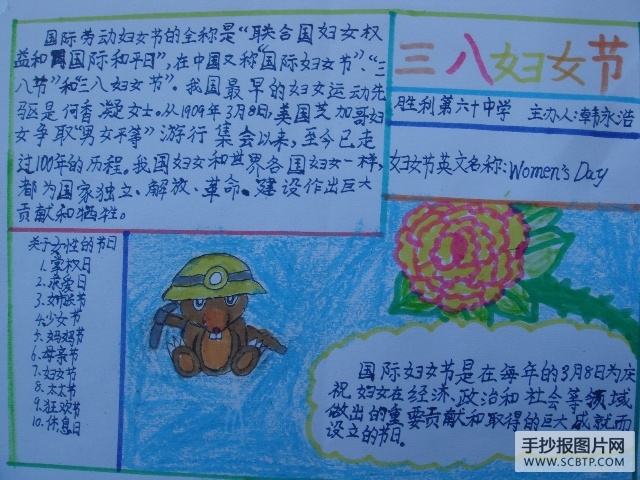 国际劳动妇女节的全称是“联合国妇女权
益和国际和平日”,在中国又称“国际妇女节”、“三
八节”和“三八妇女节”。我国最早的妇女运动先
驱是何香凝女士。从1909年3月8日,美国芝加哥妇
女争取“男女平等”游行集会以来,至今已走
过100年的历程。我国妇女和世界各国妇女一样,
都为国家独立、解放、革命、建设作出巨大
贡献和牺牲。
三八妇女节
胜利第六十中学 主办人:韩泳浩
妇女节英文名称:Women's Day
关于女性的节日
1.掌权日
2.求爱日
3.姊妹节
4.少女节
5.妈妈节
6.母亲节
7.妇女节
8.太太节
9.狂欢节
10.休息日
国际妇女节是在每年的3月8日为庆
祝妇女在经济、政治和社会等领域
做出的重要贡献和取得的巨大成就而
设立的节日。
手抄报图片网
WWW.SCBTP.COM